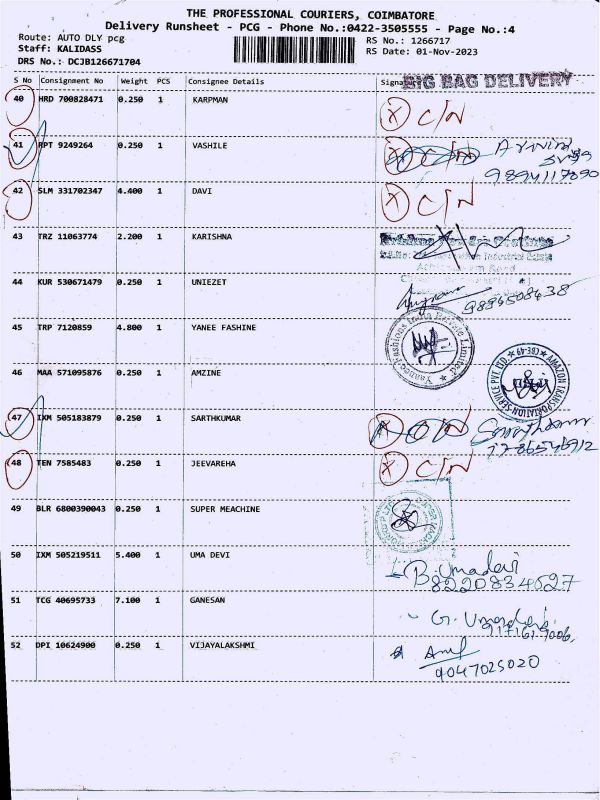 THE PROFESSIONAL COURIERS, COIMBATORE
Delivery Runsheet - PCG - Phone No.:0422-3505555 - Page No.:4
Route: AUTO DLY pcg RS No.: 1266717
Staff: KALIDASS RS Date: 01-Nov-2023
DRS No.: DCJB126671704
BIG BAG DELIVERY
S No Consignment No Weight PCS Consignee Details
40 HRD 700828471 0.250 1 KARPMAN X C/N
41 RPT 9249264 0.250 1 VASHILE
9894117890
42 SLM 331702347 4.400 1 DAVI X C/N
43 TRZ 11063774 2.200 1 KARISHNA
44 KUR 530671479 0.250 1 UNIEZET 9894508438
45 TRP 7120859 4.800 1 YANEE FASHINE
46 MAA 571095876 0.250 1 AMZINE AMAZON TRANSPORTATION SERVICE PVT. LTD. CBE-49
47 IXM 505183879 0.250 1 SARTHKUMAR
48 TEN 7585483 0.250 1 JEEVAREHA X C/N
49 BLR 6800390043 0.250 1 SUPER MEACHINE
50 IXM 505219511 5.400 1 UMA DEVI B. Umadevi
8220834527
51 TCG 40695733 7.100 1 GANESAN
52 DPI 10624900 0.250 1 VIJAYALAKSHMI
9047025020